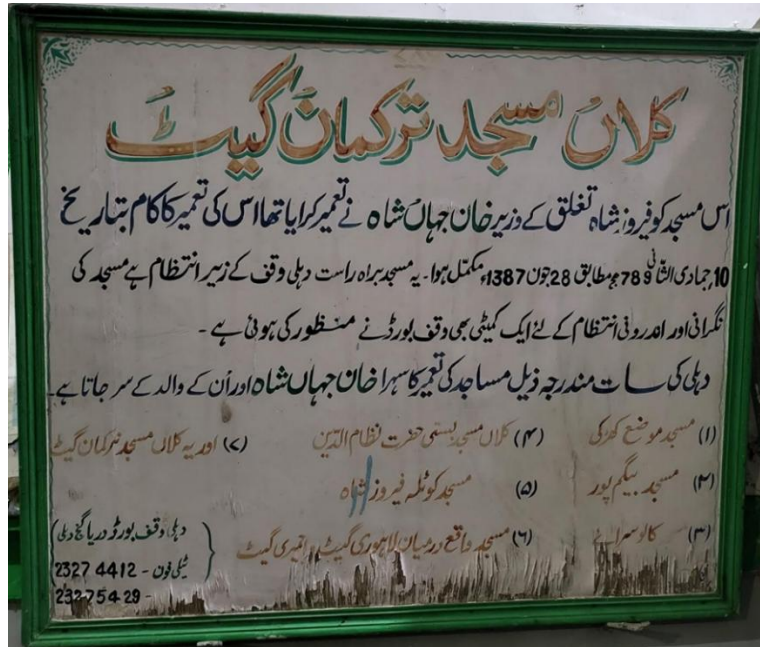 کلاں مسجد ترکمان گیٹ
اس مسجد کو فیروز شاہ تغلق کے وزیر خان جہاں شاہ نے تعمیر کرایا تھا اس کی تعمیر کا کام بتاریخ
10, جمادی الثانی 789ھ مطابق 28 جون 1387ء مکمل ہوا۔ یہ مسجد براہ راست دہلی وقف کے زیر انتظام ہے مسجد کی
نگرانی اور اندرونی انتظام کے لئے ایک کمیٹی بھی وقف بورڈ نے منظور کی ہوئی ہے۔
دہلی کی سات مندرجہ ذیل مساجد کی تعمیر کا سہرا خان جہاں شاہ اور اُن کے والد کے سر جاتا ہے۔
(۱) مسجد موضع کھڑکی (۴) کلاں مسجد بستی حضرت نظام الدین (۷) اور یہ کلاں مسجد ترکمان گیٹ
(۲) مسجد بیگم پور (۵) مسجد کوٹلہ فیروز شاہ
(۳) کالو سرائے (۶) مسجد واقع درمیان لاہوری گیٹ، اجمیری گیٹ
دہلی وقف بورڈ دریا گنج دہلی
ٹیلی فون - 2327 4412
23275429 -